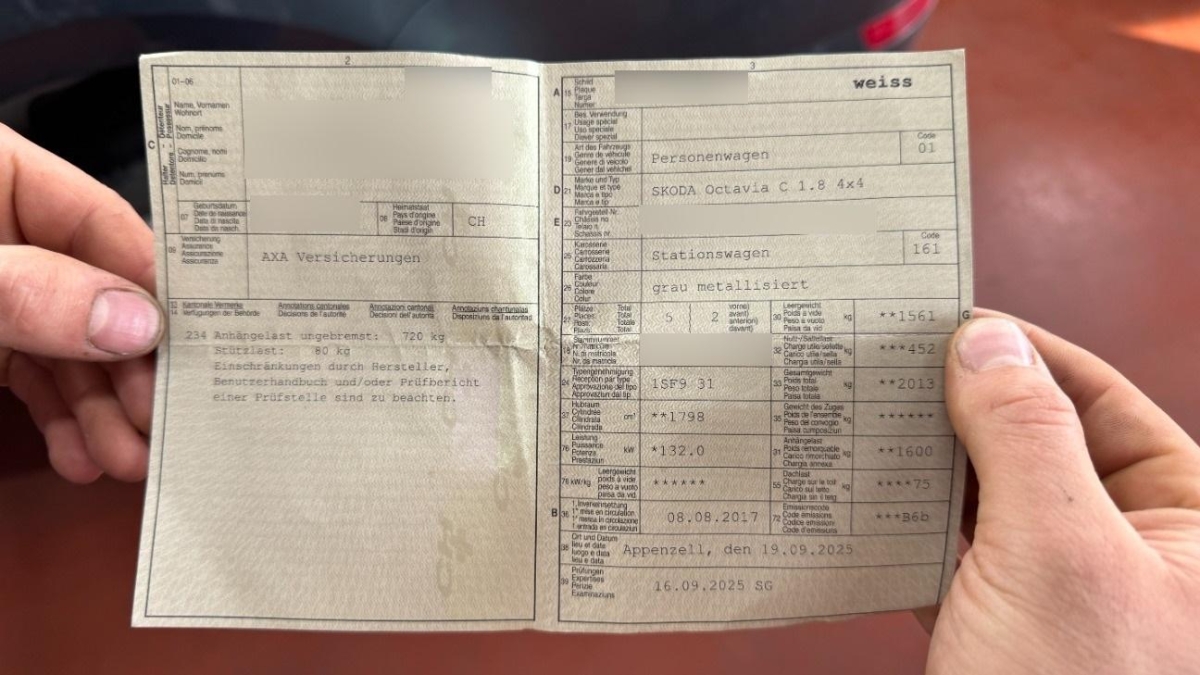 2
01-06
C
Halter Détenteur
Detentore - Possessur
Name, Vornamen
Wohnort
Nom, prénoms
Domicile
Cognome, nomi
Domicilio
Num, prenums
Domicil
07
Geburtsdatum
Date de naissance
Data di nascita
Data da nasch.
08
Heimatstaat
Pays d'origine
Paese d'origine
Stadi d'origin
CH
09
Versicherung
Assurance
Assicurazione
Assicuranza
AXA Versicherungen
13
14
Kantonale Vermerke
Verfügungen der Behörde
Annotations cantonales
Décisions de l'autorité
Annotazioni cantonali
Decisioni dell'autorità
Annotaziuns chantunalas
Disposiziuns da l'autoritad
234 Anhängelast ungebremst: 720 kg
Stützlast: 80 kg
Einschränkungen durch Hersteller,
Benutzerhandbuch und/oder Prüfbericht
einer Prüfstelle sind zu beachten.
3
A
15
Schild
Plaque
Targa
Numer
weiss
17
Bes. Verwendung
Usage spécial
Uso speciale
Diever spezial
19
Art des Fahrzeugs
Genre de véhicule
Genere di veicolo
Gener dal vehichel
Personenwagen
Code
01
D
21
Marke und Typ
Marque et type
Marca e tipo
Marca e tip
SKODA Octavia C 1.8 4x4
E
23
Fahrgestell-Nr.
Châssis no
Telaio n.
Schassis nr.
25
Karosserie
Carrosserie
Carrozzeria
Carossaria
Stationswagen
Code
161
26
Farbe
Couleur
Colore
Colur
grau metallisiert
27
Plätze Total
Places Total
Posti Totale
Plazs Total
5
2
vorne)
avant)
anteriori)
davant)
30
Leergewicht
Poids à vide
Peso a vuoto
Paisa da vid
kg
**1561
G
18
Stammnummer
N° matricule
N. di matricola
Nr. da matricla
32
Nutz-/Sattellast
Charge utile/sellette
Carico utile/sella
Chargia utila/sella
kg
***452
24
Typengenehmigung
Réception par type
Approvazione del tipo
Approvaziun dal tip
1SF9 31
33
Gesamtgewicht
Poids total
Peso totale
Paisa totala
kg
**2013
37
Hubraum
Cylindrée
Cilindrata
Cilindrada
cm³
**1798
35
Gewicht des Zuges
Poids de l'ensemble
Peso del convoglio
Paisa cumposiziun
kg
******
76
Leistung
Puissance
Potenza
Prestaziun
kW
*132.0
31
Anhängelast
Poids remorquable
Carico rimorchiato
Chargia annexa
kg
**1600
78 kW/kg
Leergewicht
poids à vide
peso a vuoto
paisa da vid
******
55
Dachlast
Charge sur le toit
Carico sul tetto
Chargia sin il tetg
kg
****75
B
36
1. Inverkehrsetzung
1re mise en circulation
1a messa in circolazione
1. entrada en circulaziun
08.08.2017
72
Emissionscode
Code émissions
Codice emissioni
Code d'emissiuns
***B6b
38
Ort und Datum
lieu et date
luogo e data
lieu e data
Appenzell, den 19.09.2025
39
Prüfungen
Expertises
Perizie
Examinaziuns
16.09.2025 SG